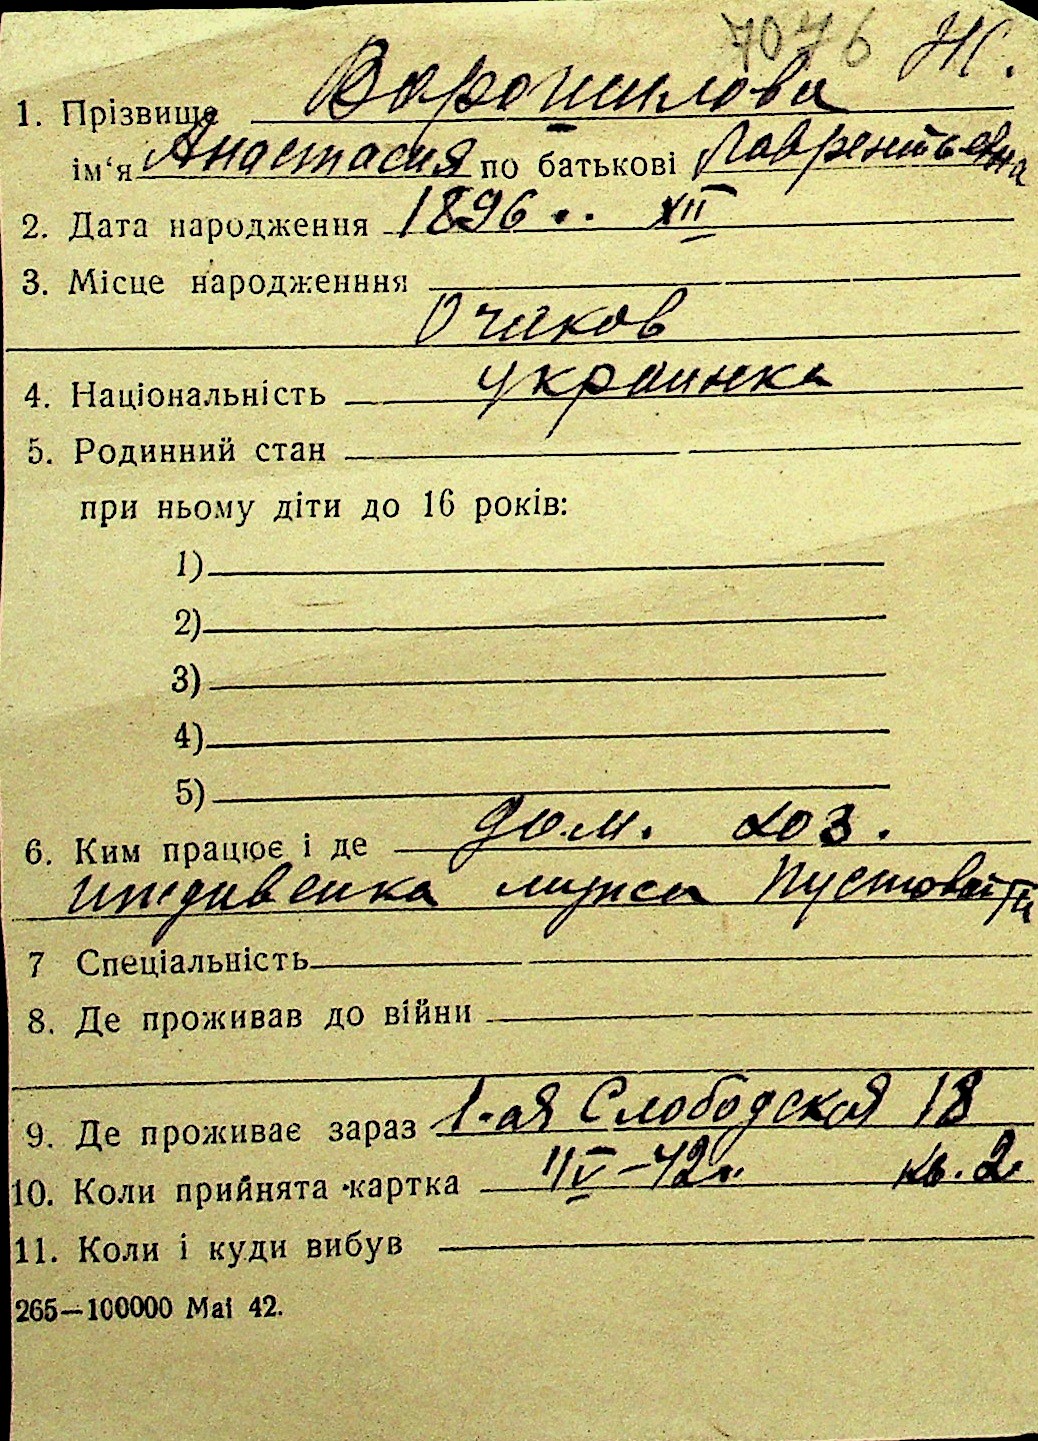 7076 Ж.
1. Прізвище Ворошилова
ім‘я Анастасия по батькові Лаврентьевна
2. Дата народження 1896 .. XII
3. Місце народженння
Очаков
4. Національність украинка
5. Родинний стан
при ньому діти до 16 років:
1)
2)
3)
4)
5)
6. Ким працює і де дом. хоз.
иждивенка мужа
7 Спеціальність
8. Де проживав до війни
9. Де проживає зараз 1-ая Слободская 18
10. Коли прийнята картка IV-42г. кв. 2
11. Коли і куди вибув
265—100000 Mai 42.